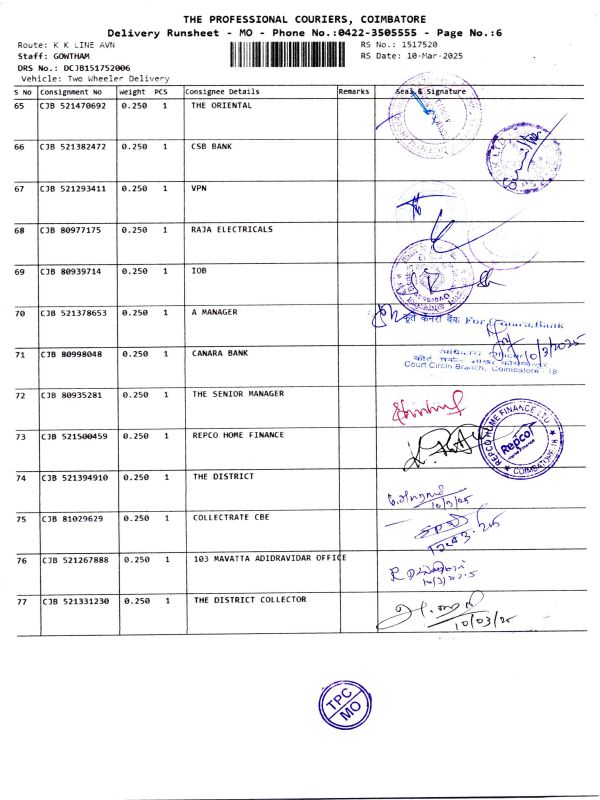 THE PROFESSIONAL COURIERS, COIMBATORE
Delivery Runsheet - MO - Phone No.:0422-3505555 - Page No.:6
Route: K K LINE AVN RS No.: 1517520
Staff: GOWTHAM RS Date: 10-Mar-2025
DRS No.: DCJB151752006
Vehicle: Two Wheeler Delivery
S No Consignment No Weight PCS Consignee Details Remarks Seal & Signature
65 CJB 521470692 0.250 1 THE ORIENTAL
66 CJB 521382472 0.250 1 CSB BANK
67 CJB 521293411 0.250 1 VPN
68 CJB 80977175 0.250 1 RAJA ELECTRICALS
69 CJB 80939714 0.250 1 IOB
70 CJB 521378653 0.250 1 A MANAGER
कृते केनरा बैंक For Canara Bank
71 CJB 80998048 0.250 1 CANARA BANK
10/3/2025
Court Circle Branch, Coimbatore - 18
72 CJB 80935281 0.250 1 THE SENIOR MANAGER
73 CJB 521500459 0.250 1 REPCO HOME FINANCE
REPCO HOME FINANCE LTD
Repco
COIMBATORE 18
74 CJB 521394910 0.250 1 THE DISTRICT
10/3/25
75 CJB 81029629 0.250 1 COLLECTRATE CBE
76 CJB 521267888 0.250 1 103 MAVATTA ADIDRAVIDAR OFFICE
77 CJB 521331230 0.250 1 THE DISTRICT COLLECTOR
10/03/25
TPC
MO